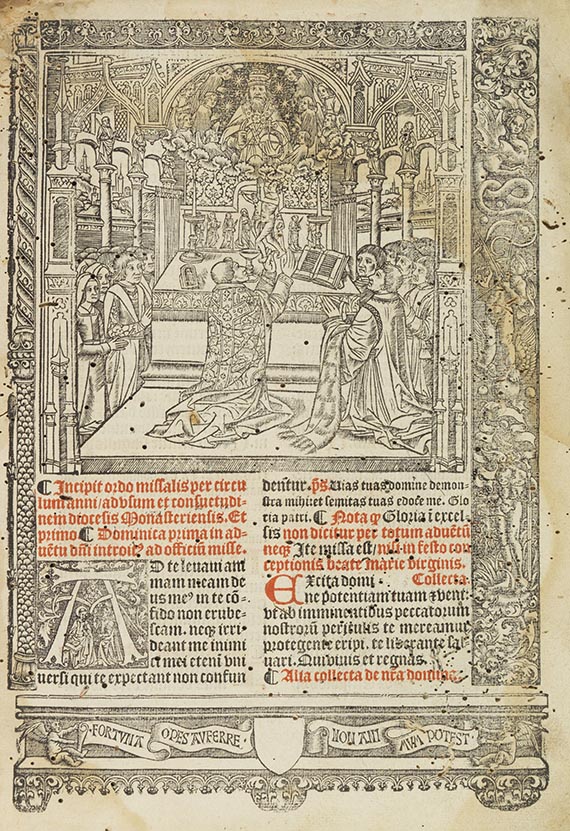 ¶ Incipit ordo missalis per circu
lum anni/ ad vsum et consuetudi
nem diocesis Monasteriensis. Et
primo ¶ Dominica prima in ad-
uētu dn̄i introit⁹/ ad officiū misse.
AD te leuaui ani
mam meam de
us me⁹ in te cō-
fido non erube-
scam. neq₃ irri
deant me inimi
ci mei etenī vni
uersi qui te expectant non confun
dentur. p̄s Uias tuas domine demon-
stra mihi et semitas tuas edoce me. Glo
ria patri. ¶ Nota q̄ Gloria ī excel-
sis non dicitur per totum aduētū
neq₃ Ite missa est/ nisi in festo con
ceptionis beate Marie virginis.
Excita domi- Collecta
ne potentiam tuam ⁊ veni
vt ab imminētibus peccatorum
nostrorū periculis te mereamur
protegente eripi. te liberante sal
uari. Qui viuis et regnas.
¶ Alia collecta de
FORTUNA OPES AUFERRE NON ANIMUM POTEST